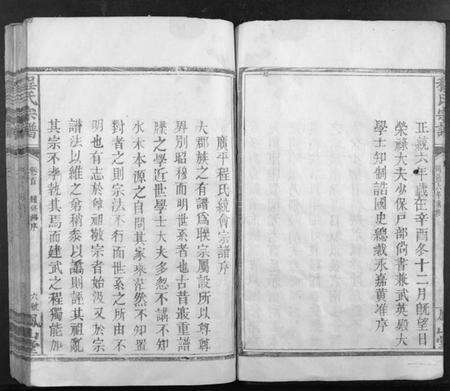 正統六年歲在辛酉冬十二月既望日
榮祿大夫少保戶部尚書兼武英殿大
學士知制誥國史總裁永嘉黃淮序
廣平程氏統會宗譜序
大郡族之有譜爲聯宗屬設所以尊尊
昇別昭穆而明世系者也古昔最重譜
牒之學近世學士大夫多忽不講不知
水木本源之自問其家來茫然不知置
對者之則宗法不行而世系之所由不
明也有志於尊祖敬宗者始汲又於宗
譜法以維之第稍黍以譌則誣其祖亂
其宗不孝孰甚焉而建武之程獨能加
程氏宗譜
卷首
六
鳳山堂